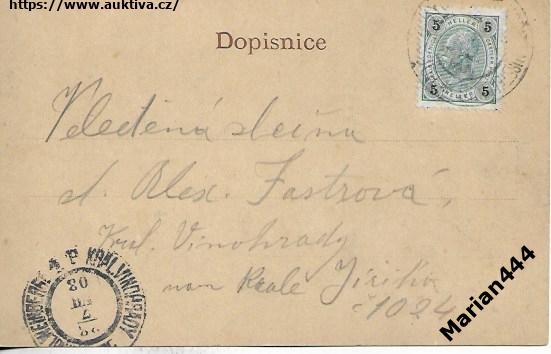 https://www.auktiva.cz/
Dopisnice
5 HELLER 5
5 5
Veleděná slečna
sl. Alex. Fastrová,
Král. Vinohrady
Jiřího
č 1024
KRÁL. VINOHRADY
Marian444